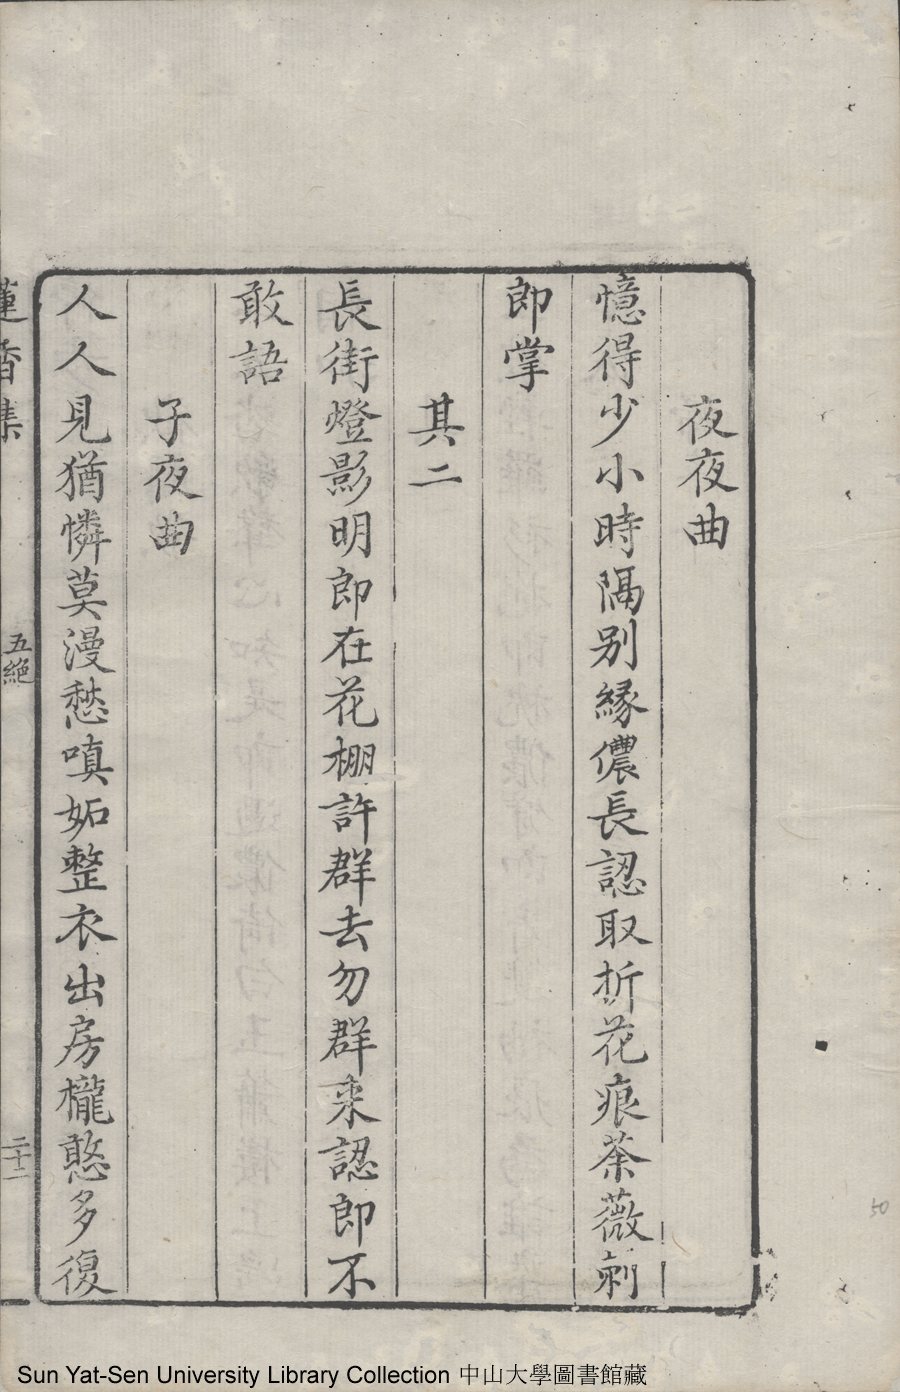 夜夜曲
憶得少小時隔别緣儂長認取折花痕茶薇刺
郎掌
其二
長街燈影明郎在花棚許群去勿群来認郎不
敢語
子夜曲
人人見猶憐莫漫愁嗔妬整衣出房櫳憨多復
蓮香集
五絶
二十二
50
Sun Yat-Sen University Library Collection 中山大學圖書館藏